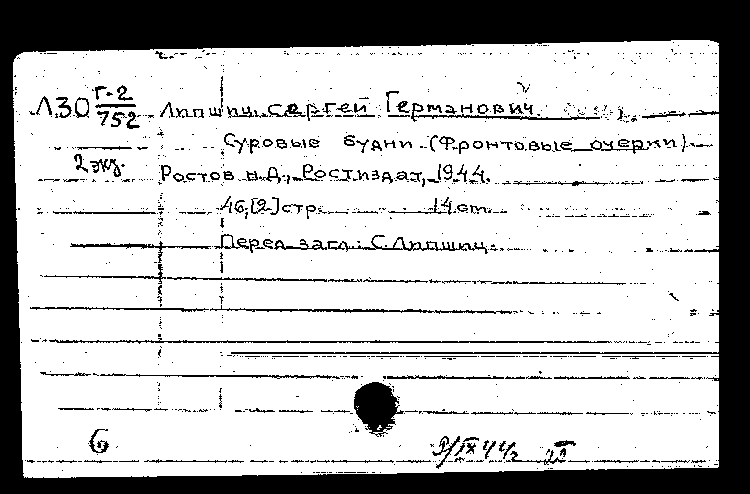 Л30 Г-2/752 Липшиц, Сергей Германович
Суровые будни (Фронтовые очерки).
2 экз. Ростов н.Д., Ростиздат, 1944.
46,[2] стр. 14 см.
Перед загл.: С. Липшиц.
6